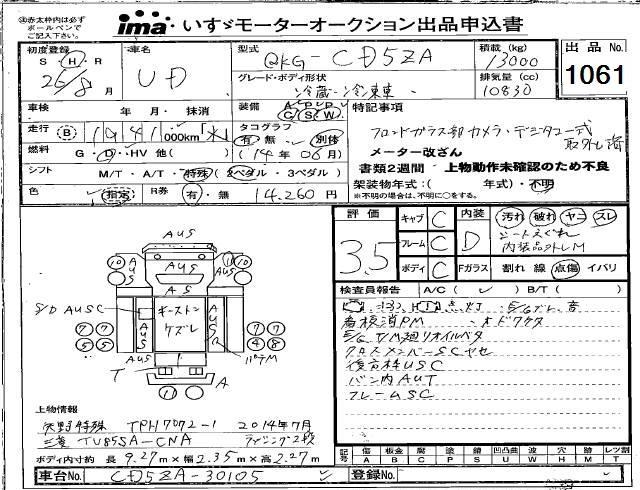 ㊟赤太枠内は必ず
ボールペンで
ご記入下さい。
ima いすゞモーターオークション出品申込書
初度登録 車名 型式 積載(kg) 出品No.
S・H・R UD QKG-CD5ZA 13000 1061
26/8月 グレード・ボディ形状 排気量(cc)
冷蔵冷凍車 10830
車検 年 月・抹消 装備 A P P C S W 特記事項
走行 B 1941 000km タコグラフ フロントガラス部カメラ・デジタコ一式
有 無 別体 取外し済
燃料 G・D・HV 他( ) (14年06月) メーター改ざん
シフト M/T・A/T・特殊(2ペダル・3ペダル) 書類2週間・上物動作未確認のため不良
色 指定 R券 有・無 14,260円 架装物年式:( 年式)・不明
※不明の場合は、不明に○をする。
評価 3.5 キャブ C 内装 D 汚れ 破れ ヤニ スレ
フレーム C シートえぐれ
内装品外しM
ボディ C Fガラス 割れ 線 点傷 イバリ
検査員報告 A/C( ) B/T( )
点灯 E/Gブレ、音
看板消PM ・オドワケタ
E/G T/M廻リオイルベタ
クロスメンバーSCヤセ
後方枠USC
バン内AUT
フレームUSC
AUS
AUS
AUS
10 11 10
S/D AUSC
キーストン
ケズレ
AUS
7 7 7 7
5 5 4 8
T A
11
上物情報
矢野特殊 TPH7072-1 2014年7月
三菱 TU85SA-CNA
ボディ内寸約 長 9.27m×幅 2.35m×高 2.27m
記号 傷 板金 腐 交換 パテ 錆 凹 凸凹曲 波 穴 跡 レツ割
A B C X P S U W H M T
車台No. CD5ZA-30105 登録No.